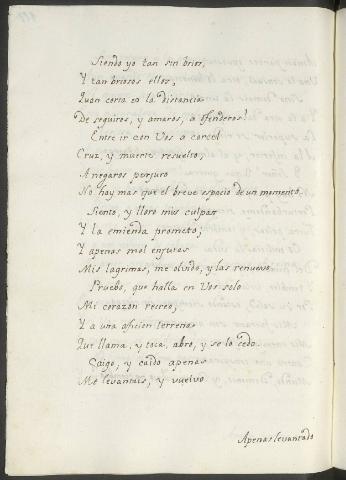 Siendo yo tan sin brios,
Y tan briosos ellos,
Quan corta es la distancia
De seguiros, y amaros, a ofenderos!
Entre ir con Vos a carcel
Cruz, y muerte resuelto,
A negaros perjuro
No hay mas que el breve espacio de un momento.
Siento, y lloro mis culpas
Y la emienda prometo;
Y apenas mal enjutas
Mis lagrimas, me olvido, y las renuevo.
Pruebo, que halla en Vos solo
Mi corazon recreo;
Y a una aficion terrena
Que llama, y toca, abro, y se lo cedo.
Caigo, y caido apenas
Me levantais, y vuelvo
Apenas levantado